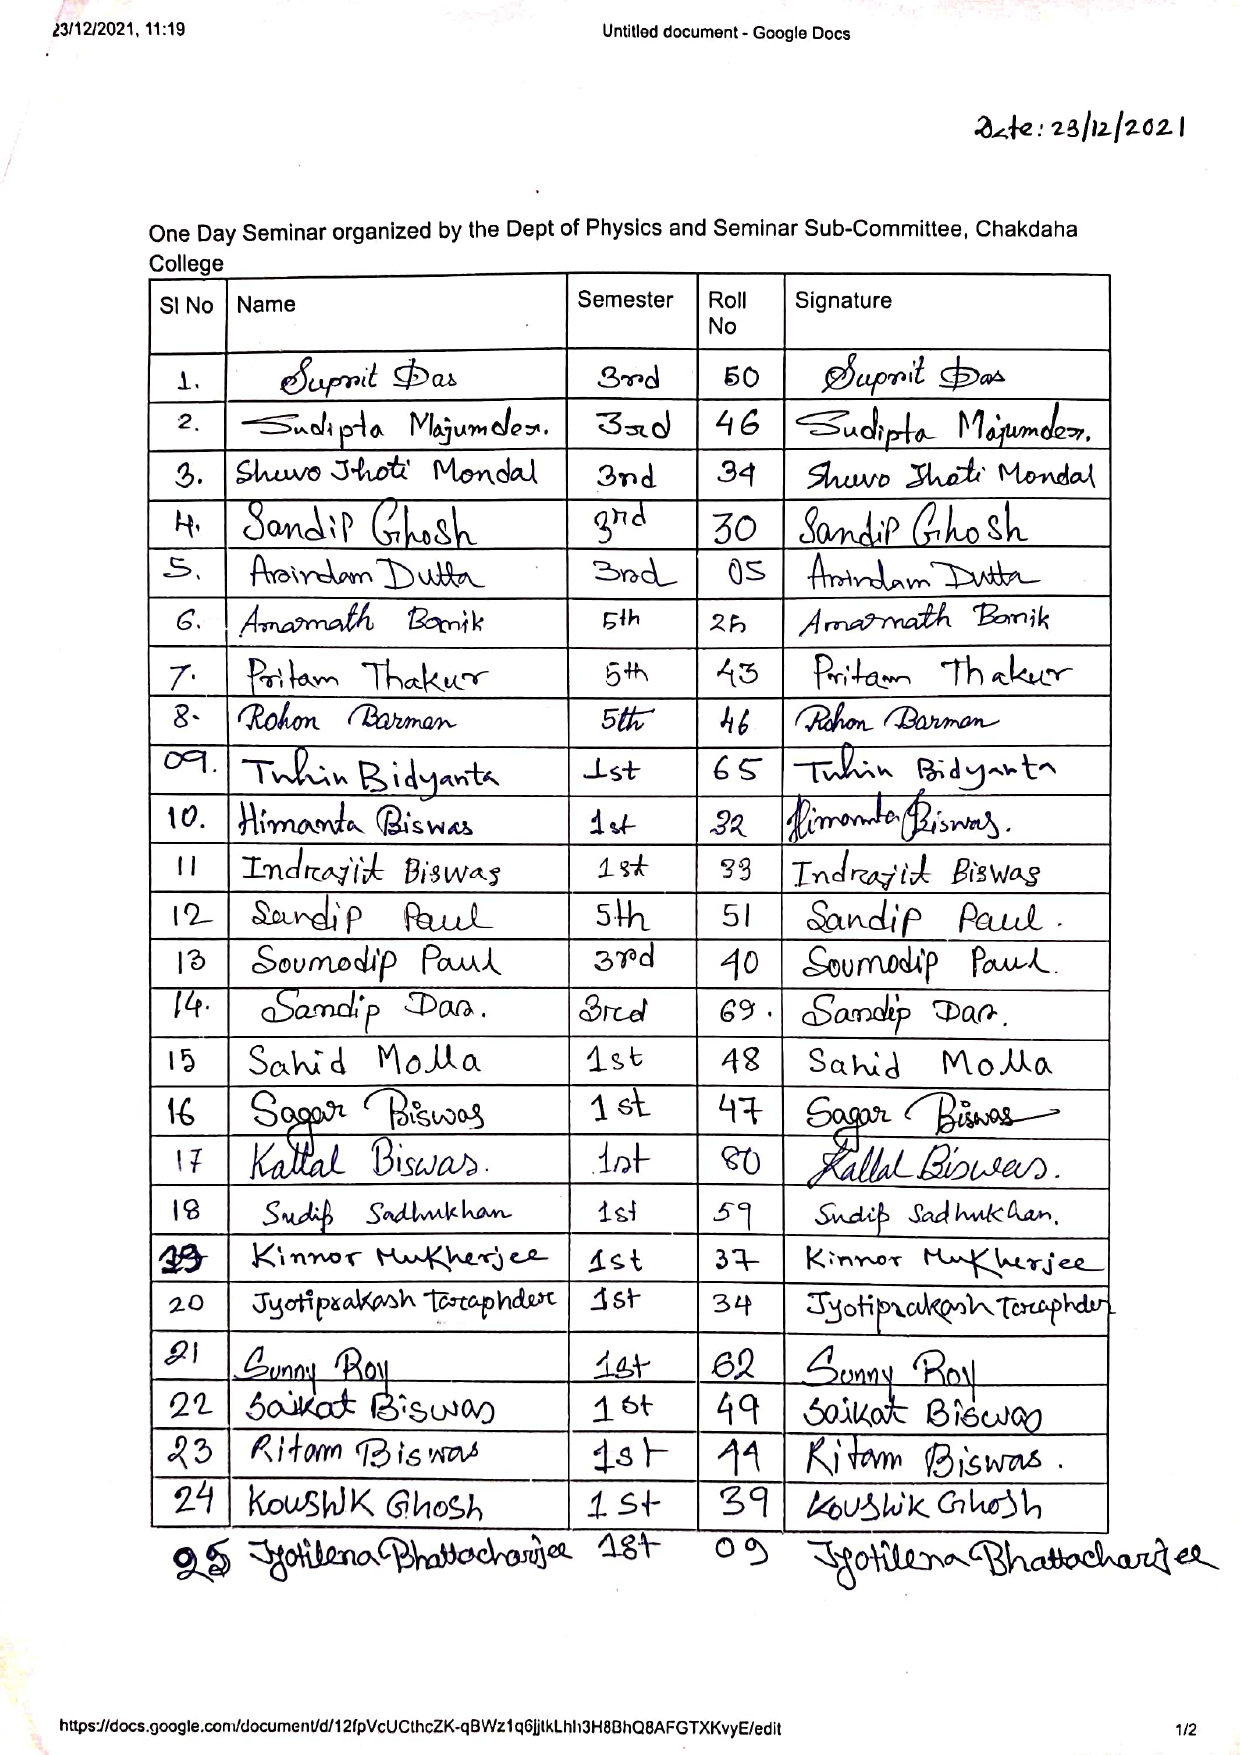 23/12/2021, 11:19 Untitled document - Google Docs
Date: 23/12/2021
One Day Seminar organized by the Dept of Physics and Seminar Sub-Committee, Chakdaha
College
Sl No Name Semester Roll No Signature
1. Suprit Das 3rd 50 Suprit Das
2. Sudipta Majumder. 3rd 46 Sudipta Majumder.
3. Shuvo Jhoti Mondal 3rd 34 Shuvo Jhoti Mondal
4. Sandip Ghosh 3rd 30 Sandip Ghosh
5. Arindam Dutta 3rd 05 Arindam Dutta
6. Amarnath Bomik 5th 25 Amarnath Bomik
7. Pritam Thakur 5th 43 Pritam Thakur
8. Rohon Barman 5th 46 Rohon Barman
09. Tuhin Bidyanta 1st 65 Tuhin Bidyanta
10. Himanta Biswas 1st 32 Himanta Biswas.
11 Indrajit Biswas 1st 33 Indrajit Biswas
12 Sandip Paul 5th 51 Sandip Paul.
13 Soumodip Paul 3rd 40 Soumodip Paul.
14. Sandip Das. 3rd 69. Sandip Das.
15 Sahid Molla 1st 48 Sahid Molla
16 Sagar Biswas 1st 47 Sagar Biswas
17 Kallal Biswas. 1st 80 Kallal Biswas.
18 Sudip Sadhukhan 1st 59 Sudip Sadhukhan.
19 Kinnor Mukherjee 1st 37 Kinnor Mukherjee
20 Jyotiprakash Taraphder 1st 34 Jyotiprakash Taraphder
21 Sunny Roy 1st 62 Sunny Roy
22 Saikat Biswas 1st 49 Saikat Biswas
23 Ritam Biswas 1st 44 Ritam Biswas.
24 Koushik Ghosh 1st 39 Koushik Ghosh
25 Jyotilena Bhattacharjee 1st 09 Jyotilena Bhattacharjee
1/2